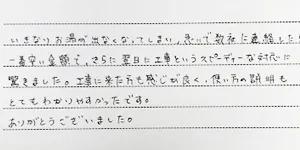 いきなりお湯が出なくなってしまい、急いで数社に連絡した
一番安い金額で、さらに翌日に工事というスピーディーな対応に
驚きました。工事に来た方も感じが良く、使い方の説明も
とてもわかりやすかったです。
ありがとうございました。